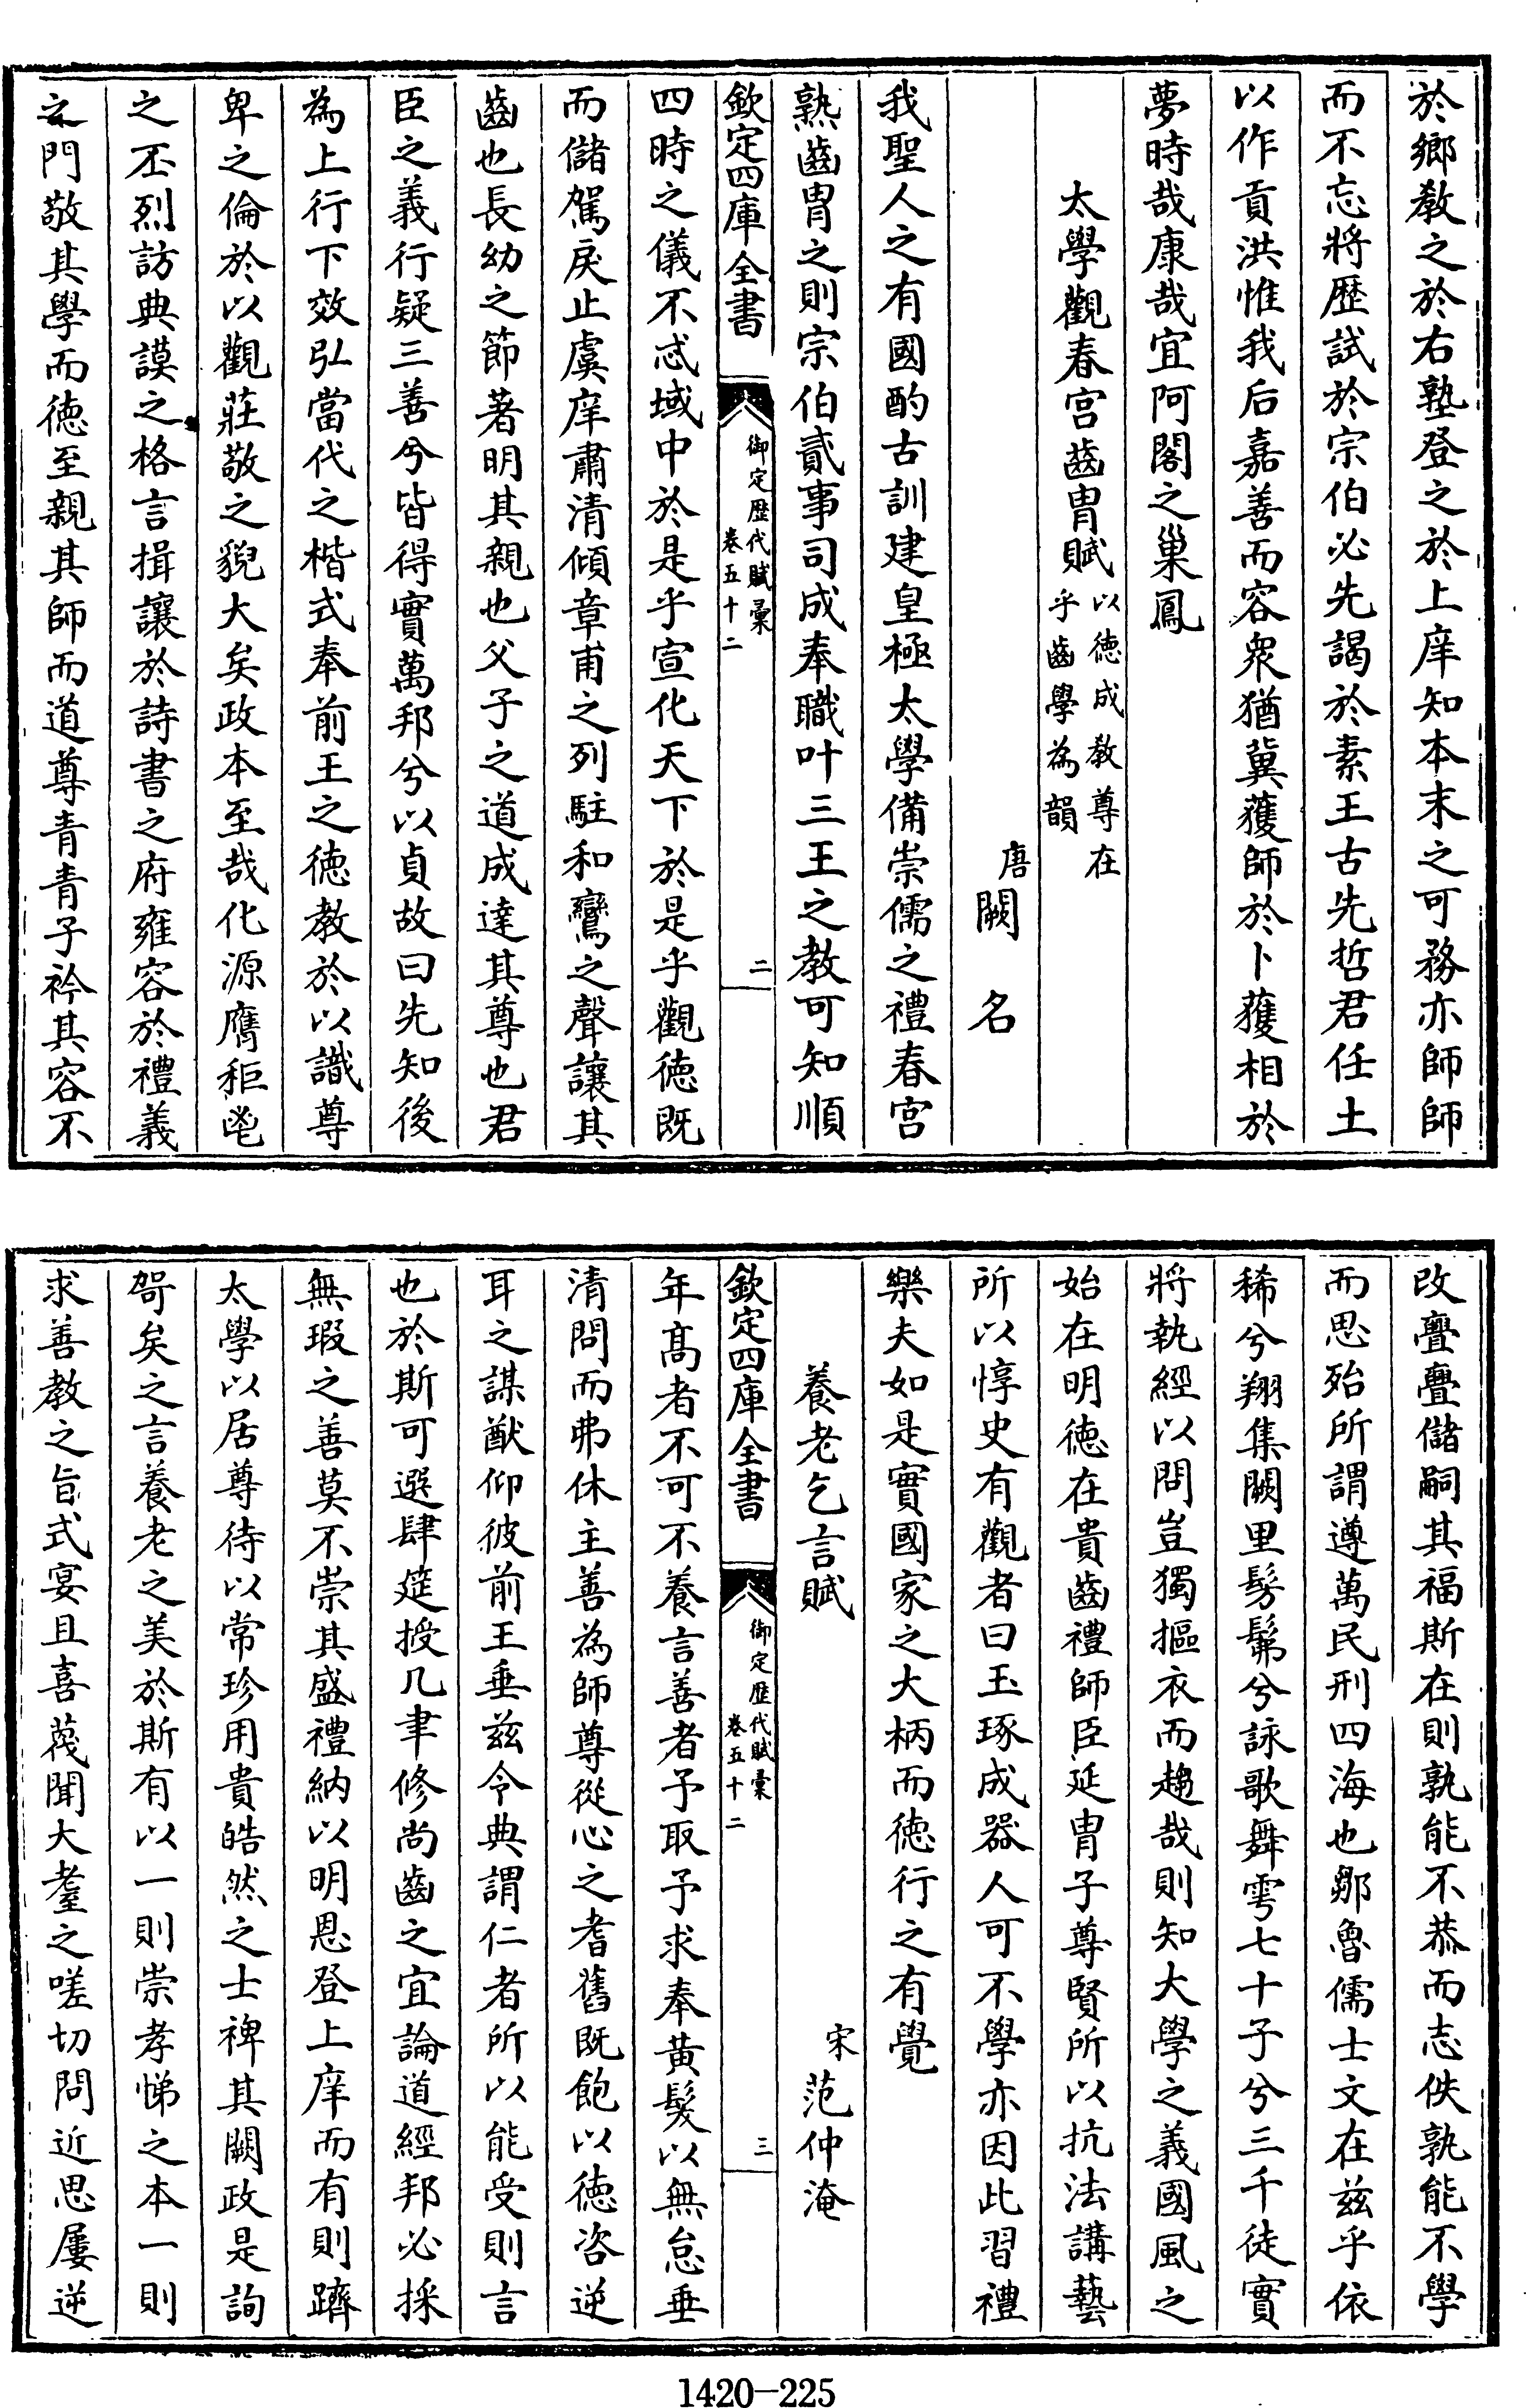 於鄉教之於右塾登之於上庠知本末之可務亦師師
而不忘將歴試於宗伯必先謁於素王古先哲君任土
以作貢洪惟我后嘉善而容衆猶冀獲師於卜獲相於
夢時哉康哉宜阿閣之巢鳳
太學觀春宫齒胄賦以德成教尊在
乎齒學為韻
唐闕名
我聖人之有國酌古訓建皇極太學備崇儒之禮春宫
熟齒胄之則宗伯貳事司成奉職叶三王之教可知順
欽定四庫全書
御定歴代賦彙
卷五十二
二
四時之儀不忒域中於是乎宣化天下於是乎觀德既
而儲駕戾止虞庠肅清傾章甫之列駐和鸞之聲讓其
齒也長幼之節著明其親也父子之道成達其尊也君
臣之義行疑三善兮皆得實萬邦兮以貞故曰先知後
為上行下效弘當代之楷式奉前王之德教於以識尊
卑之倫於以觀莊敬之貌大矣政本至哉化源膺秬鬯
之丕烈訪典謨之格言揖讓於詩書之府雍容於禮義
之門敬其學而德至親其師而道尊青青子衿其容不
改亹亹儲嗣其福斯在則孰能不恭而志佚孰能不學
而思殆所謂遵萬民刑四海也鄒魯儒士文在兹乎依
稀兮翔集闕里髣髴兮詠歌舞雩七十子兮三千徒實
將執經以問豈獨摳衣而趨哉則知大學之義國風之
始在明德在貴齒禮師臣延胄子尊賢所以抗法講藝
所以惇史有觀者曰玉琢成器人可不學亦因此習禮
樂夫如是實國家之大柄而德行之有覺
養老乞言賦
宋范仲淹
欽定四庫全書
御定歴代賦彙
卷五十二
三
年高者不可不養言善者予取予求奉黃髮以無怠垂
清問而弗休主善為師尊從心之耆舊既飽以德咨逆
耳之謀猷仰彼前王垂兹令典謂仁者所以能受則言
也於斯可選肆筵授几聿修尚齒之宜論道經邦必採
無瑕之善莫不崇其盛禮納以明恩登上庠而有則躋
太學以居尊待以常珍用貴皓然之士裨其闕政是詢
哿矣之言養老之美於斯有以一則崇孝悌之本一則
求善教之旨式宴且喜蔑聞大耋之嗟切問近思屢逆
1420-225